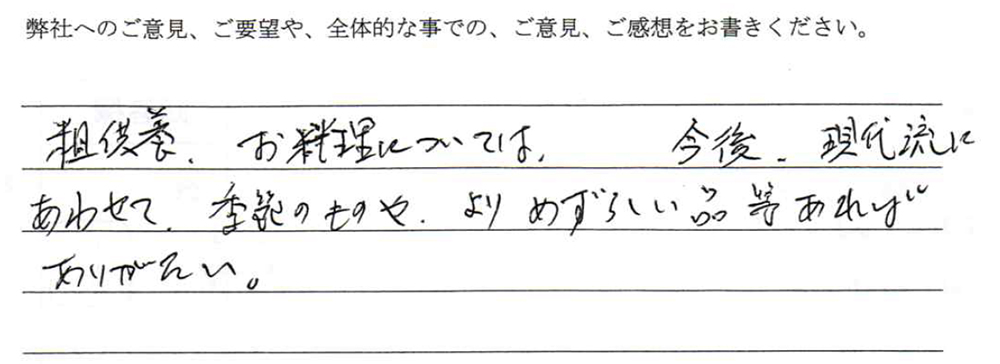 弊社へのご意見、ご要望や、全体的な事での、ご意見、ご感想をお書きください。
粗供養、お料理については、今後、現代流に
あわせて、季節のものや、よりめずらしい品等あれば
ありがたい。